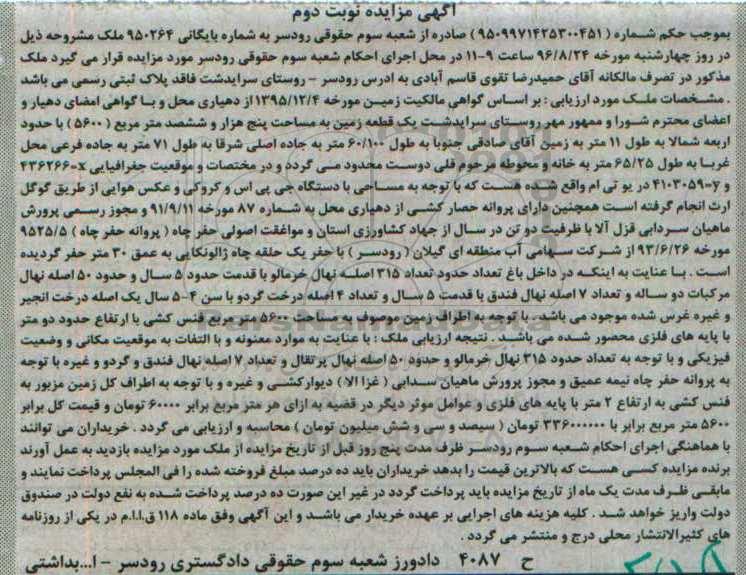 آگهی مزایده نوبت دوم
بموجب حکم شماره ( ۹۵۰۹۹۷۱۴۲۵۳۰۰۴۵۱ ) صادره از شعبه سوم حقوقی رودسر به شماره بایگانی ۹۵۰۲۶۴ ملک مشروحه ذیل
در روز چهارشنبه مورخه ۹۶/۸/۲۴ ساعت ۹-۱۱ در محل اجرای احکام شعبه سوم حقوقی رودسر مورد مزایده قرار می گیرد ملک
مذکور در تصرف مالکانه آقای حمیدرضا تقوی قاسم آبادی به ادرس رودسر - روستای سرایدشت فاقد پلاک ثبتی رسمی می باشد
. مشخصات ملک مورد ارزیابی : بر اساس گواهی مالکیت زمین مورخه ۱۳۹۵/۱۲/۴ از دهیاری محل و با گواهی امضای دهیار و
اعضای محترم شورا و ممهور مهر روستای سرایدشت یک قطعه زمین به مساحت پنج هزار و ششصد متر مربع ( ۵۶۰۰ ) با حدود
اربعه شمالا به طول ۱۱ متر به زمین آقای صادقی جنوبا به طول ۶۰/۱۰۰ متر به جاده اصلی شرقا به طول ۷۱ متر به جاده فرعی محل
غربا به طول ۶۵/۲۵ متر به خانه و محوطه مرحوم قلی دوست محدود می گردد و در مختصات و موقعیت جغرافیایی x=۴۳۶۲۶۶
و y=۴۱۰۳۰۵۹ در یو تی ام واقع شده هست که با توجه به مساحی با دستگاه جی پی اس و کروکی و عکس هوایی از طریق گوگل
ارث انجام گرفته است همچنین دارای پروانه حصار کشی از دهیاری محل به شماره ۸۷ مورخه ۹۱/۹/۱۱ و مجوز رسمی پرورش
ماهیان سردابی قزل آلا با ظرفیت دو تن در سال از جهاد کشاورزی استان و موافقت اصولی حفر چاه ( پروانه حفر چاه ) ۹۵۲۵/۵
مورخه ۹۳/۶/۲۶ از شرکت سهامی آب منطقه ای گیلان ( رودسر ) با حفر یک حلقه چاه ژالونکایی به عمق ۳۰ متر حفر گردیده
است . با عنایت به اینکه در داخل باغ تعداد حدود تعداد ۳۱۵ اصله نهال خرمالو با قدمت حدود ۵ سال و حدود ۵۰ اصله نهال
مرکبات دو ساله و تعداد ۷ اصله نهال فندق با قدمت ۵ سال و تعداد ۴ اصله درخت گردو با سن ۴-۵ سال یک اصله درخت انجیر
و غیره غرس شده موجود می باشد . با توجه به اطراف زمین موصوف به مساحت ۵۶۰۰ متر مربع فنس کشی با ارتفاع حدود دو متر
با پایه های فلزی محصور شده می باشد . نتیجه ارزیابی ملک : با عنایت به موارد معنونه و با التفات به موقعیت مکانی و وضعیت
فیزیکی و با توجه به تعداد حدود ۳۱۵ نهال خرمالو و حدود ۵۰ اصله نهال پرتقال و تعداد ۷ اصله نهال فندق و گردو و غیره با توجه
به پروانه حفر چاه نیمه عمیق و مجوز پرورش ماهیان سدابی ( غزا الا ) دیوارکشی و غیره و با توجه به اطراف کل زمین مزبور به
فنس کشی به ارتفاع ۲ متر با پایه های فلزی و عوامل موثر دیگر در قضیه به ازای هر متر مربع برابر ۶۰۰۰۰ تومان و قیمت کل برابر
۵۶۰۰ متر مربع برابر با ۳۳۶۰۰۰۰۰۰ تومان ( سیصد و سی و شش میلیون تومان ) محاسبه و ارزیابی می گردد . خریداران می توانند
با هماهنگی اجرای احکام شعبه سوم رودسر ظرف مدت پنج روز قبل از تاریخ مزایده از ملک مورد مزایده بازدید به عمل آورند
برنده مزایده کسی هست که بالاترین قیمت را بدهد خریداران باید ده درصد مبلغ فروخته شده را فی المجلس پرداخت نمایند و
مابقی ظرف مدت یک ماه از تاریخ مزایده باید پرداخت گردد در غیر این صورت ده درصد پرداخت شده به نفع دولت در صندوق
دولت واریز خواهد شد . کلیه هزینه های اجرایی بر عهده خریدار می باشد و این آگهی وفق ماده ۱۱۸ ق.ا.ا.م در یکی از روزنامه
های کثیرالانتشار محلی درج و منتشر می گردد .
ح ۴۰۸۷ دادورز شعبه سوم حقوقی دادگستری رودسر - ا...بداشتی